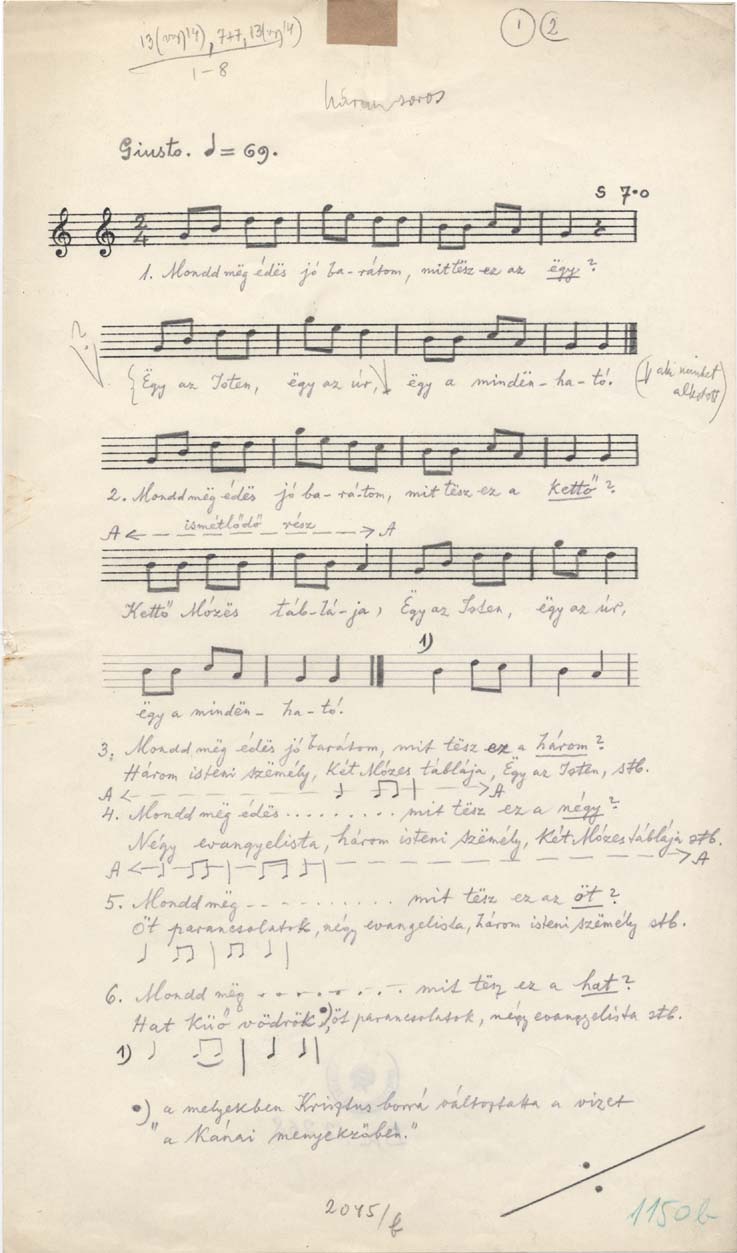 13(v̄ḡ14), 7+7, 13(v̄ḡ14)
1 2
1-8
három soros
Giusto. = 69.
S 7.0
2/4
1. Mondd mëg édës jó ba-rátom, mit tësz ez az ëgy?
?
Ëgy az Isten, ëgy az úr, ëgy a mindën-ha-tó. (aki minket
alkotott)
2. Mondd mëg édës jó ba-rá-tom, mit tësz ez a kettő?
A ismétlődő rész A
Kettő Mózës táb-lá-ja, Ëgy az Isten, ëgy az úr,
1)
ëgy a mindën- ha-tó.
3. Mondd mëg édës jó barátom, mit tësz ez a három?
Három isteni szëmély, Két Mózes táblája, Ëgy az Isten, stb.
A A
4. Mondd mëg édës......... mit tësz ez a négy?
Négy evangyelista, három isteni szëmély, Két Mózes táblája stb.
A A
5. Mondd mëg - - - . . . . . . mit tësz ez az öt?
Öt parancsolatok, négy evangelista, három isteni szëmély stb.
6. Mondd mëg . . . . . . . mit tësz ez a hat?
Hat Küő vödrök •), öt parancsolatok, négy evangyelista stb.
1)
•) a melyekben Krisztus borrá változtatta a vizet
"a Kánai menyekzőben."
2045/b
1150b